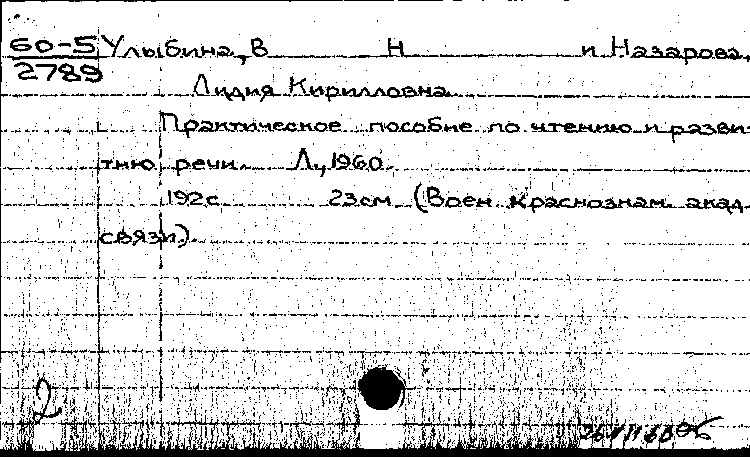 60-5 Улыбина, В Н и Назарова,
2789
Лидия Кирилловна
Практическое пособие по чтению и разви-
тию речи. Л., 1960.
192с 23см (Воен краснознам. акад.
связи).
2